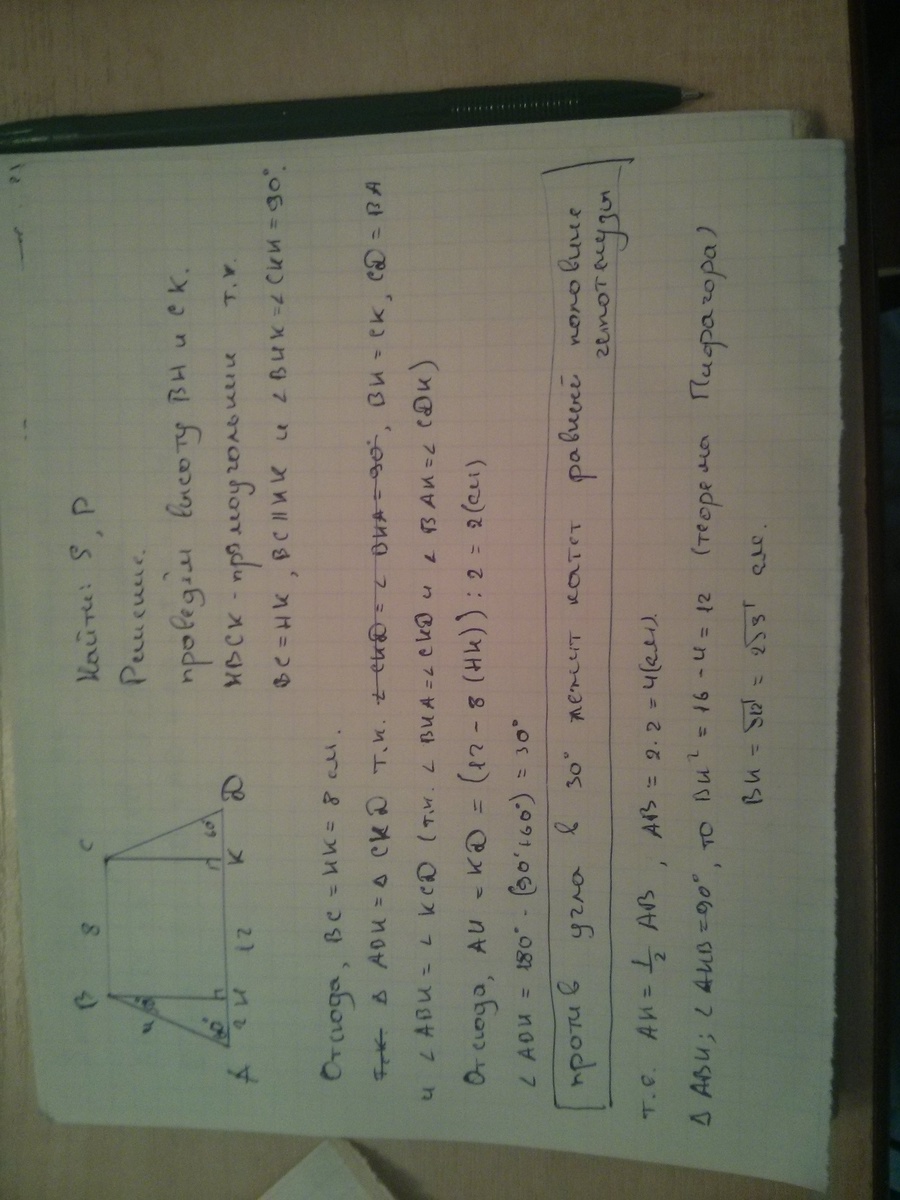 Найти: S, P
Решение.
проведём высоту BH и CK.
HBCK - прямоугольник т.к.
BC = HK, BC || HK и ∠BHK = ∠CKH = 90°.
B 8 C
4 30°
60° 60°
A 2 H 12 K D
Отсюда, BC = HK = 8 см.
Т.к. Δ ABH = Δ CKD т.к. ∠CKD = ∠BHA = 90°, BH = CK, CD = BA
и ∠ABH = ∠KCD (т.к. ∠BHA = ∠CKD и ∠BAH = ∠CDK)
Отсюда, AH = KD = (12 - 8 (HK)) : 2 = 2 (см)
∠ABH = 180° - (90° + 60°) = 30°
[против угла в 30° лежит катет равный половине
гипотенузы]
т.е. AH = 1/2 AB, AB = 2·2 = 4 (см).
Δ ABH; ∠AHB = 90°, то BH² = 16 - 4 = 12 (теорема Пифагора)
BH = √12 = 2√3 см.